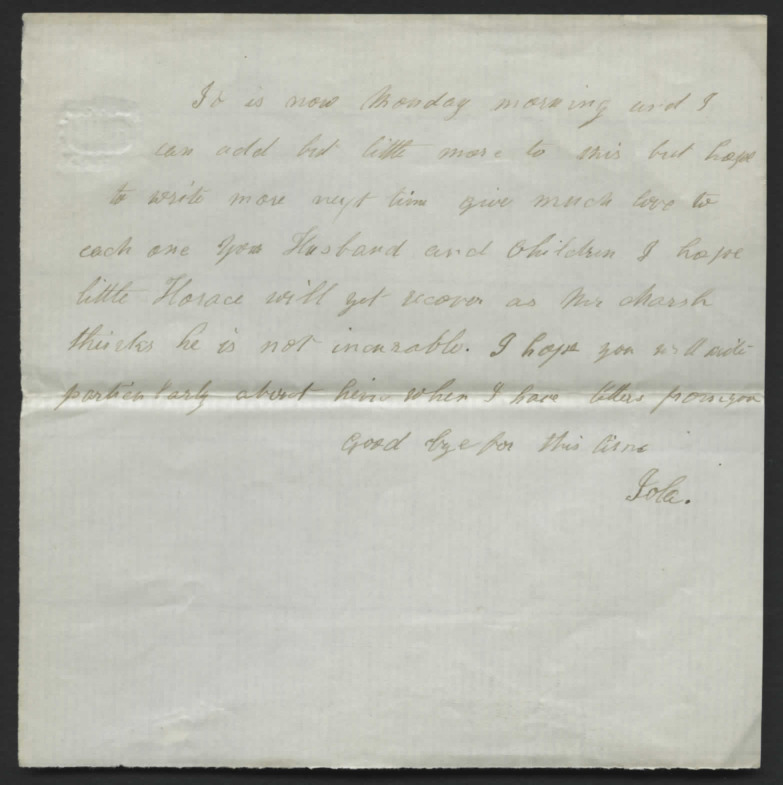 It is now Monday morning and I
can add but little more to this but hope
to write more next time give much love to
each one your Husband and Children I hope
little Horace will yet recover as Mr Marsh
thinks he is not incurable. I hope you will write
particularly about him when I have letters from you
Good bye for this time
Iola.